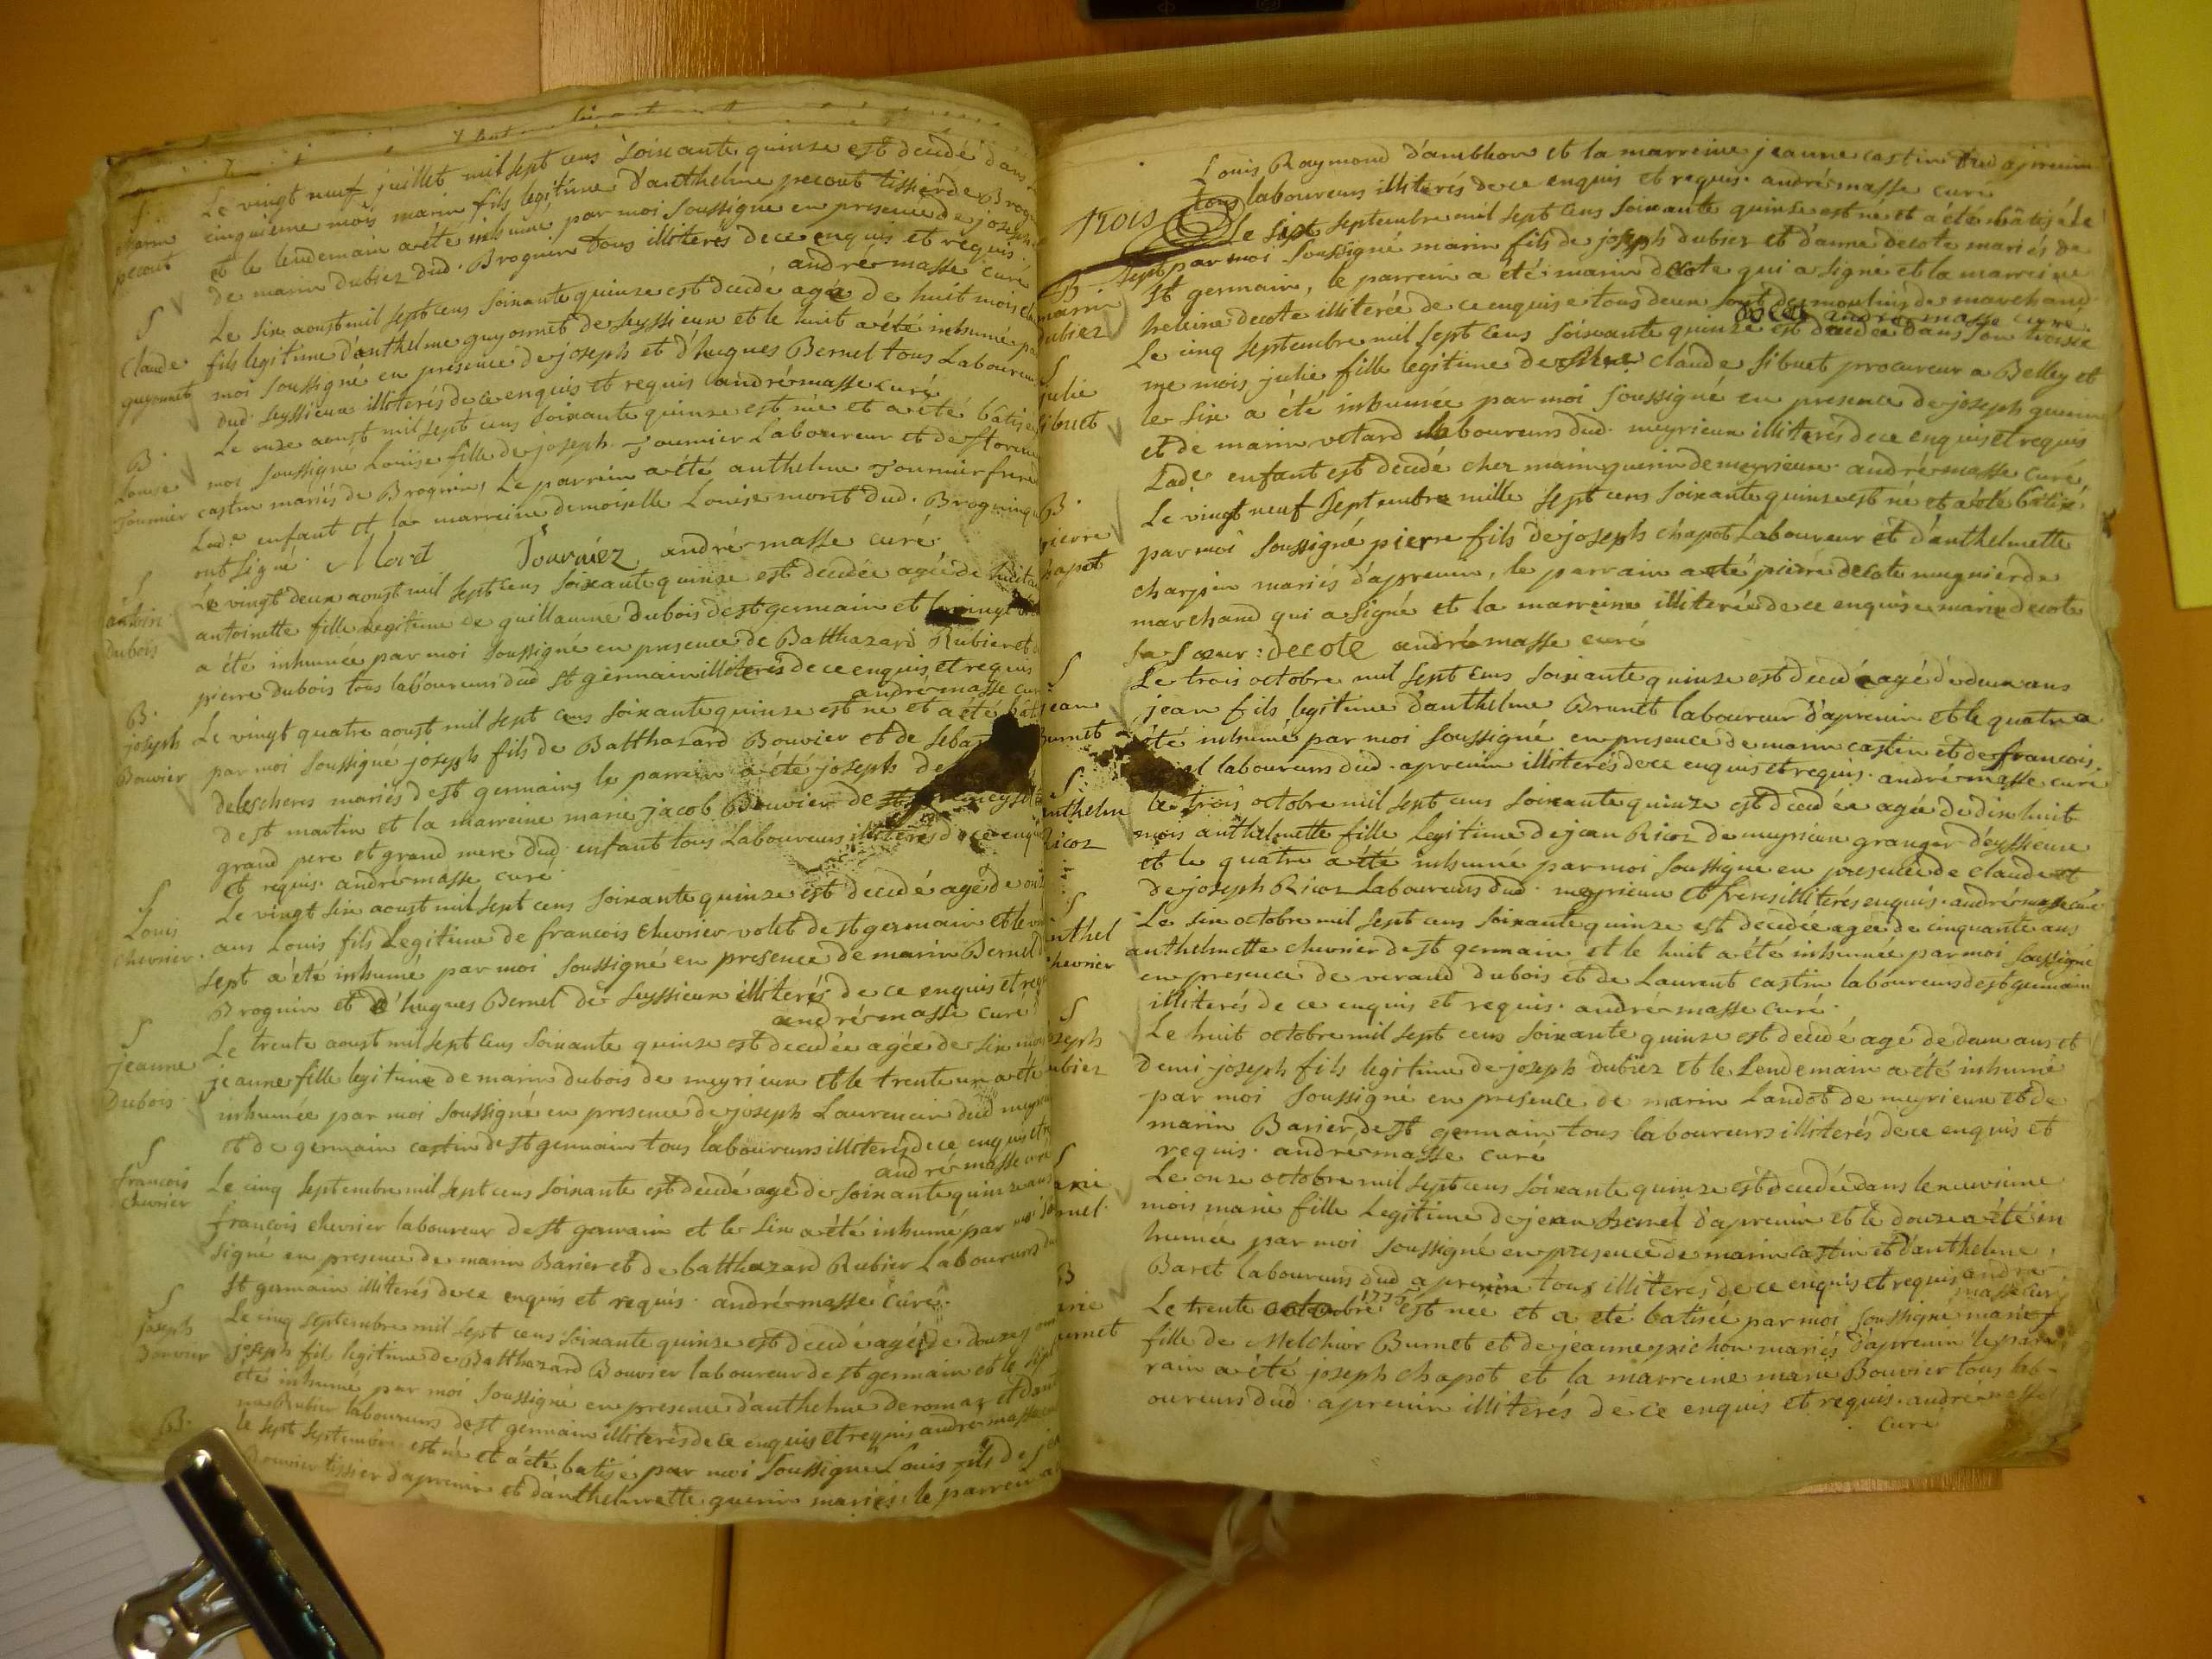 S. Le vingt neuf juillet mil sept cens soixante quinse est decedé dans
marin cinquieme mois marin fils legitime d'anthelme pecout tissier de Brog
pecout et le lendemain a été inhumé par moi soussigné en presence de joseph
de marin dubiez dud. Brognin tous illiterés de ce enquis et requis.
andré masse curé
S Le six aoust mil sept cens soixante quinse est decedé agé de huit mois
Claude fils legitime d'anthelme guyonnet de seyssieux et le huit a été inhumé
guyonnet moi soussigné en presence de joseph et d'hugues Bernel tous Laboureurs
dud. seyssieux illiterés de ce enquis et requis andré masse curé
B. Le onse aoust mil sept cens soixante quinse est née et a été bâtisée
Louise moi soussigné Louise fille de joseph Tournier Laboureur et de
Tournier castin mariés de Brognin, Le parrein a été anthelme Tournier frere
Lad.e enfant et la marreine demoiselle Louise morit dud. Brognin qui
ont signé. Morit Tournier andré masse curé
S Le vingt deux aoust mil sept cens soixante quinse est decedée agée de
antoin antoinette fille legitime de guillaume dubois de st germain et le vingt
Dubois a été inhumée par moi soussigné en presence de Batthazard Rubier et
pierre dubois tous laboureurs dud st germain illiterés de ce enquis et requis
andré masse curé
B. Le vingt quatre aoust mil sept cens soixante quinse est né et a été
joseph par moi soussigné joseph fils de Batthazard Bouvier et de
Bouvier delescheres mariés de st germain, le parrein a été joseph
de st martin et la marreine marie jacob Bouvier de
grand pere et grand mere dud. enfant tous Laboureurs illiterés de ce
et requis. andré masse curé
S Le vingt six aoust mil sept cens soixante quinse est decedé agé de
Louis ans Louis fils Legitime de francois chevrier volet de st germain et le
chevrier. sept a été inhumé par moi soussigné en presence de marin Bernel
Brognin et d'hugues Bernel de seyssieux illiterés de ce enquis et
andré masse curé
S Le trente aoust mil sept cens soixante quinse est decedée agée de six mois
jeanne jeanne fille legitime de marin dubois de meyrieux et le trente un a été
Dubois inhumée par moi soussigné en presence de joseph Laurencin dud
et de germain castin de st germain tous laboureurs illiterés de ce enquis et
andré masse curé
S Le cinq septembre mil sept cens soixante est decedé agé de soixante quinze ans
francois francois chevrier laboureur de st germain et le six a été inhumé par moi
chevrier signé en presence de marin Barier et de batthazard Rubier Laboureurs
st germain illiterés de ce enquis et requis. andré masse curé.
S Le cinq septembre mil sept cens soixante quinse est decedé agé de
joseph joseph fils legitime de Batthazard Bouvier laboureur de st germain et le sept
Bouvier été inhumé par moi soussigné en presence d'anthelme deromaz et
Rubier laboureurs de st germain illiterés de ce enquis et requis andré masse
B. le sept septembre est né et a été batisé par moi soussigné Louis fils de
Bouvier tissier d'apremin et d'anthelmette guerin mariés. le parrein a
Louis Raymond d'ambhon et la marreine jeanne castin dud apremin
trois tous laboureurs illiterés de ce enquis et requis. andré masse curé
le sept septembre mil sept cens soixante quinse est né et a été bâtisé le
B sept par moi soussigné marin fils de joseph dubiez et d'anne decote mariés de
marin st germain, le parrein a été marin decote qui a signé et la marreine
dubiez heleine decote illiterée de ce enquise tous deux sont des moulins de marchand
decot andré masse curé.
S Le cinq septembre mil sept cens soixante quinze est decedée dans son troisie
julie me mois julie fille legitime de claude sibuet procureur a Belley et
sibuet le six a été inhumée par moi soussigné en presence de joseph guerin
et de marin vetard laboureurs dud. meyrieux illiterés de ce enquis et requis
Lad.e enfant est decedé chez marin guerin de meyrieux. andré masse curé,
B. Le vingt neuf septembre mille sept cens soixante quinse est né et a été batisé
pierre par moi soussigné pierre fils de joseph chapot Laboureur et d'anthelmette
chapot charpin mariés d'apremin, le parrain a été pierre decote mugnier de
marchand qui a signé et la marreine illiterée de ce enquise marie decote
sa sœur: decote andré masse curé
S Le trois octobre mil sept cens soixante quinse est decedé agé de deux ans
jean jean fils legitime d'anthelme Brunet laboureur d'apremin et le quatre a
Burnet été inhumé par moi soussigné en presence de marin castin et de francois
laboureurs dud. apremin illiterés de ce enquis et requis. andré masse curé
S. le trois octobre mil sept cens soixante quinze est decedée agée de dix huit
anthelm mois anthelmette fille legitime de jean Ricoz de meyrieux granger d'eyssieux
Ricoz et le quatre a été inhumé par moi soussigné en presence de claude et
de joseph Ricoz Laboureurs dud. meyrieux et freres illiterés enquis. andré masse curé
S Le six octobre mil sept cens soixante quinze est decedée agée de cinquante ans
anthel anthelmette chevrier de st germain et le huit a été inhumée par moi soussigné
chevrier en presence de verand dubois et de Laurent castin laboureurs de st germain
illiterés de ce enquis et requis. andré masse curé.
S Le huit octobre mil sept cens soixante quinze est decedé agé de deux ans et
joseph demi joseph fils legitime de joseph dubiez et le Lendemain a été inhumé
dubiez par moi soussigné en presence de marin Landot de meyrieux et de
marin Barier de st germain tous laboureurs illiterés de ce enquis et
requis. andré masse curé
S Le onze octobre mil sept cens soixante quinze est decedée dans le neuvieme
marie mois marie fille Legitime de jean Bernel d'apremin et le douze a été in
Bernel humée par moi soussigné en presence de marin castin et d'anthelme
Baret laboureurs dud apremin tous illiterés de ce enquis et requis andré
masse curé
B Le trente octobre 1775 est née et a eté batisée par moi soussigné marie
marie fille de Melchior Burnet et de jeanne pichon mariés d'apremin le par
Burnet rain a été joseph chapot et la marreine marie Bouvier tous lab-
oureurs dud. apremin illiterés de ce enquis et requis. andré masse
curé